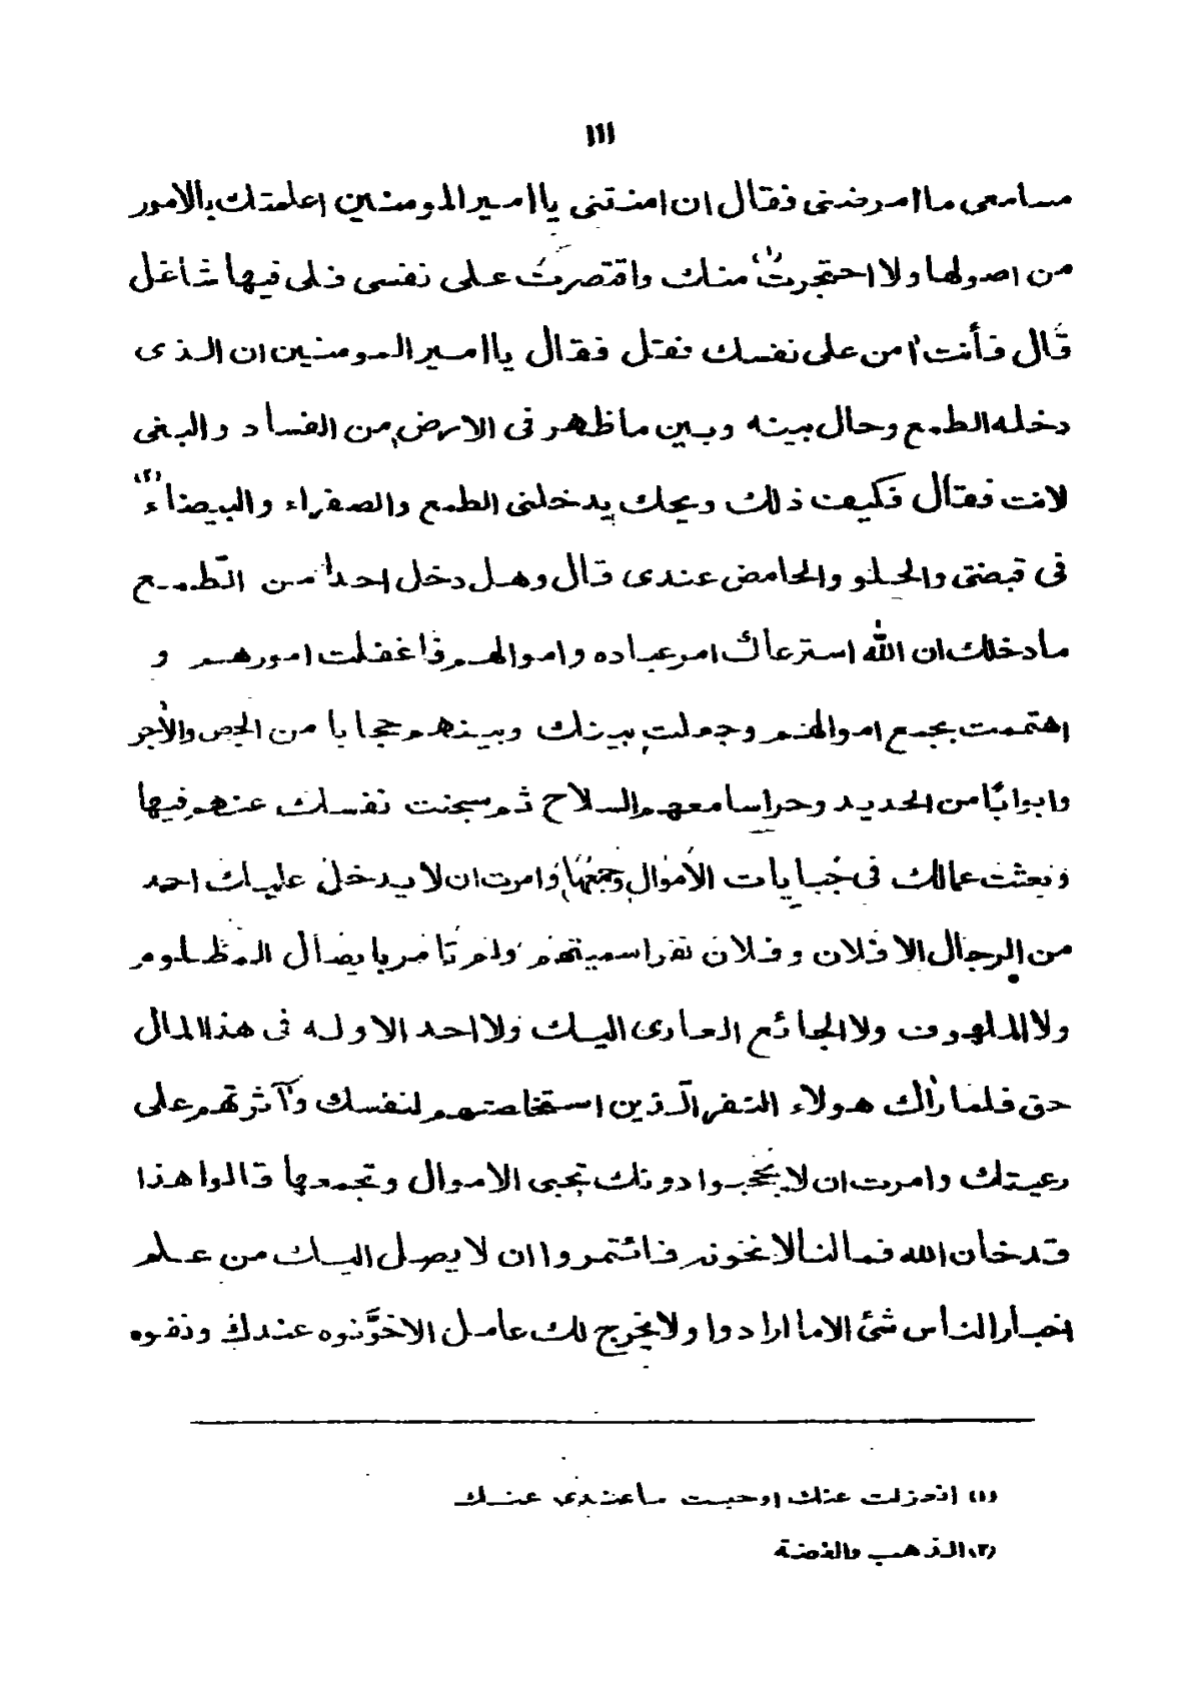 ١١١
مسامعى ما امرضنى فقال ان امنتنى يا امير المومنين اعلمتك بالامور
من اصولها ولا احتجرتُ⁽¹⁾ منك واقتصرتُ على نفسى فلى فيها شاغل
قال فأنت اٰمن على نفسك فقل فقال يا امير المومنين ان الذى
دخله الطمع وحال بينه وبين ما ظهر فى الارض من الفساد والبغى
لانت فقال فكيف ذلك ويحك يدخلنى الطمع والصفراء والبيضاء⁽٢⁾
فى قبضتى والحلو والحامض عندى قال وهل دخل احدا من الطمع
ما دخلك ان الله استرعاك امر عباده واموالهم فاغفلت امورهم و
اهتممت بجمع اموالهم وجعلت بينك وبينهم حجابا من الجص والأجر
وابوابًا من الحديد وحراسا معهم السلاح ثم سجنت نفسك عنهم فيها
وبعثت عمالك فى جبايات الأموال وجمعها وامرت ان لا يدخل عليك احد
من الرجال الا فلان وفلان نفرا سميتهم ولم تامر بايصال المظلوم
ولا الملهوف ولا الجائع العارى اليك ولا احد الا وله فى هذا المال
حق فلما رأك هولاء النفر الّذين استخلصتهم لنفسك وآثرتهم على
رعيتك وامرت ان لا يحجبوا دونك تجبى الاموال وتجمعها قالوا هذا
قد خان الله فما لنا لا نخونه فائتمروا ان لا يصل اليك من علم
اخبار الناس شئ الا ما ارادوا ولا يخرج لك عامل الا خوَّنوه عندك ونفوه
(١) انعزلت عنك او حبست ما عندى عنك
(٢) الذهب والفضة